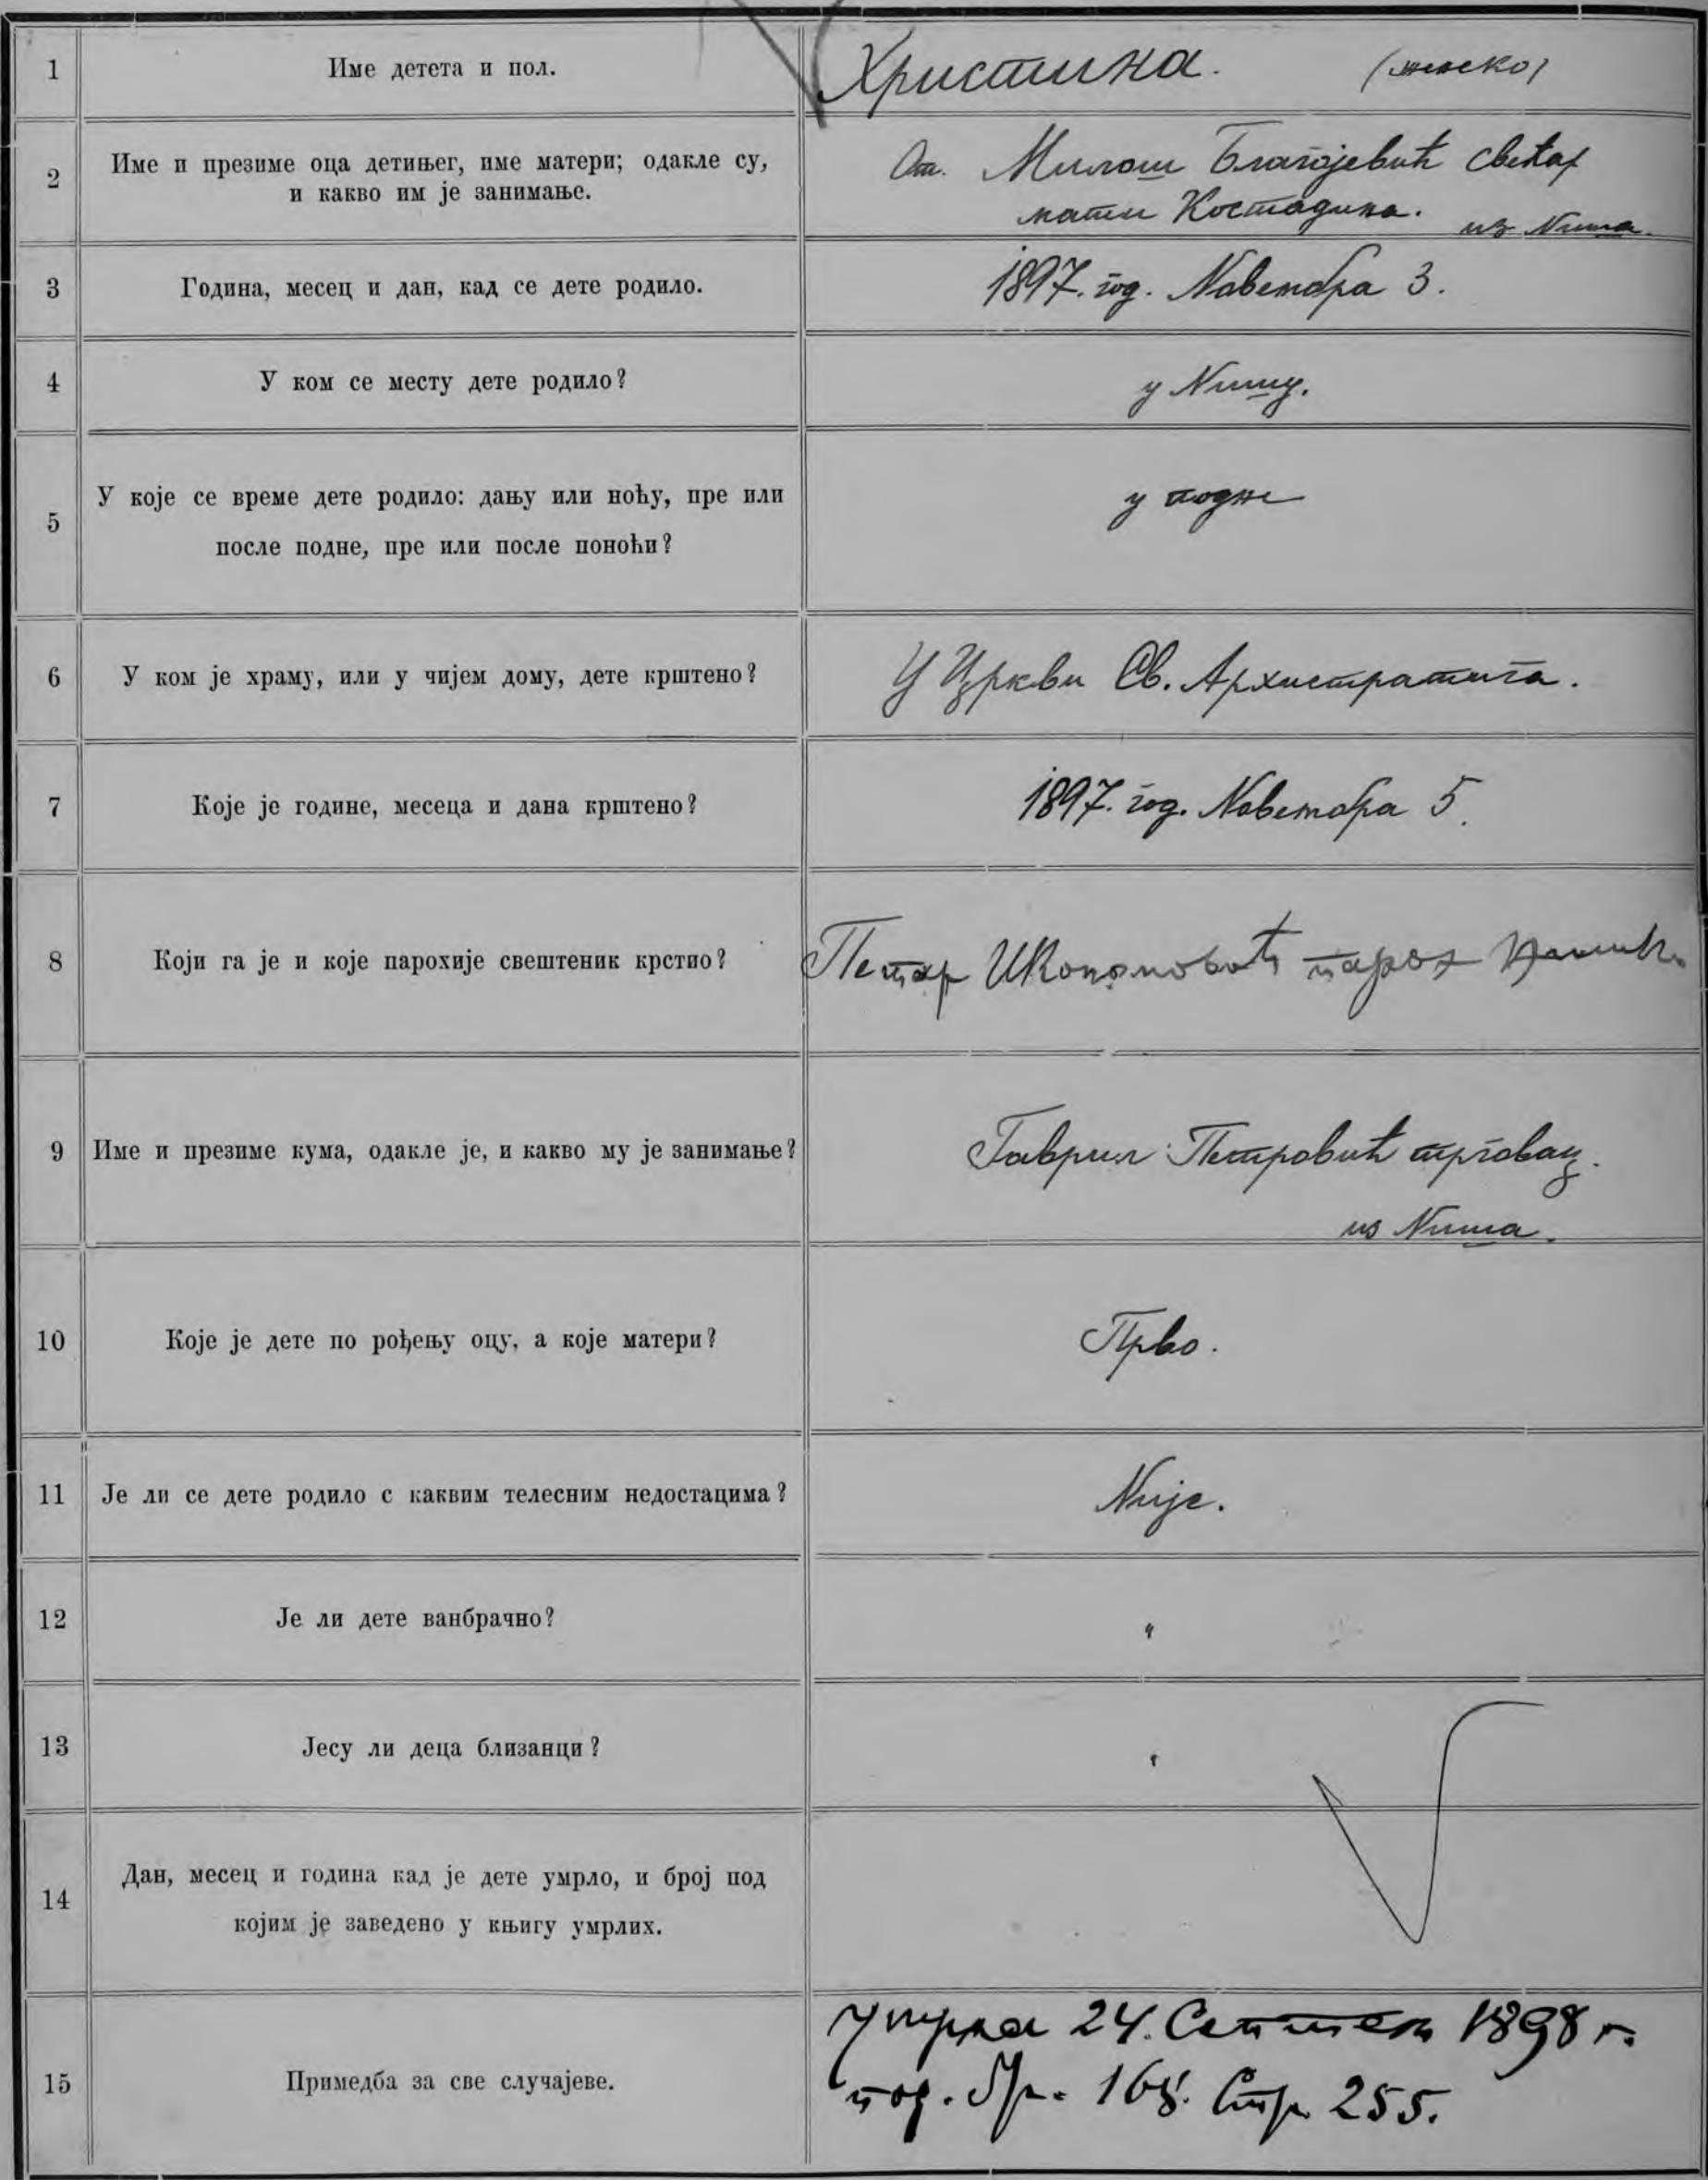 1 Име детета и пол. Христина. (женско)
2 Име и презиме оца детињег, име матери; одакле су,
и какво им је занимање.
От. Милош Благојевић свећар
мати Костадина. из Ниша.
3 Година, месец и дан, кад се дете родило. 1897. год. Новембра 3.
4 У ком се месту дете родило? у Нишу.
5 У које се време дете родило: дању или ноћу, пре или
после подне, пре или после поноћи?
у подне
6 У ком је храму, или у чијем дому, дете крштено? У Цркви Св. Архистратига.
7 Које је године, месеца и дана крштено? 1897. год. Новембра 5.
8 Који га је и које парохије свештеник крстио? Петар Икономовић парох
9 Име и презиме кума, одакле је, и какво му је занимање? Гаврил Петровић трговац.
из Ниша.
10 Које је дете по рођењу оцу, а које матери? Прво.
11 Је ли се дете родило с каквим телесним недостацима? Није.
12 Је ли дете ванбрачно? "
13 Јесу ли деца близанци? "
14 Дан, месец и година кад је дете умрло, и број под
којим је заведено у књигу умрлих.
15 Примедба за све случајеве.
умрла 24. Септем 1898 г.
под. бр. Стр. 255.